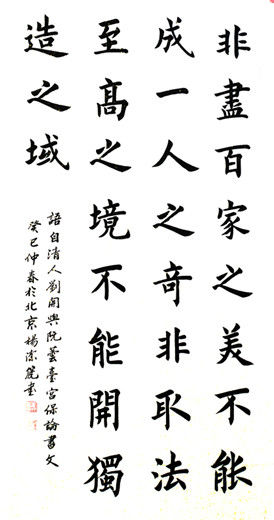 非盡百家之美不能
成一人之奇非取法
至髙之境不能開獨
造之域
語自清人劉開與阮蕓臺宮保論書文
癸巳仲春於北京楊